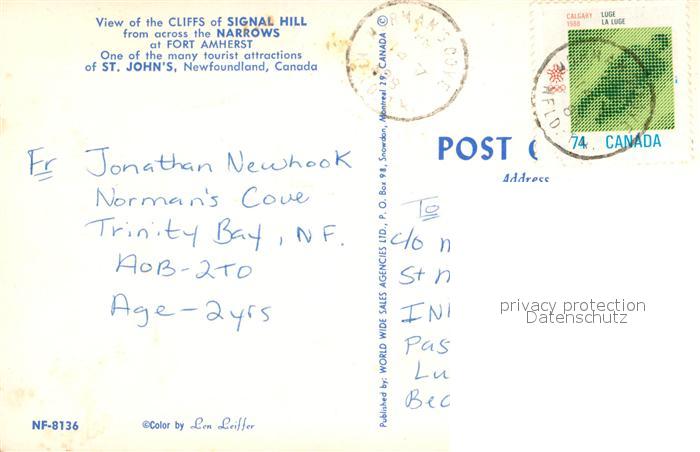 View of the CLIFFS of SIGNAL HILL
from across the NARROWS
at FORT AMHERST
One of the many tourist attractions
of ST. JOHN'S, Newfoundland, Canada
Fr Jonathan Newhook
Norman's Cove
Trinity Bay, NF.
A0B-2T0
Age-2yrs
NF-8136
©Color by Len Leiffer
Published by: WORLD WIDE SALES AGENCIES LTD., P. O. Box 98, Snowdon, Montreal 29, CANADA ©
NORMAN'S COVE
CALGARY 1988
LUGE
LA LUGE
74 CANADA
NFLD
POST
Address
To
c/o
St
Pas
Lu
privacy protection
Datenschutz